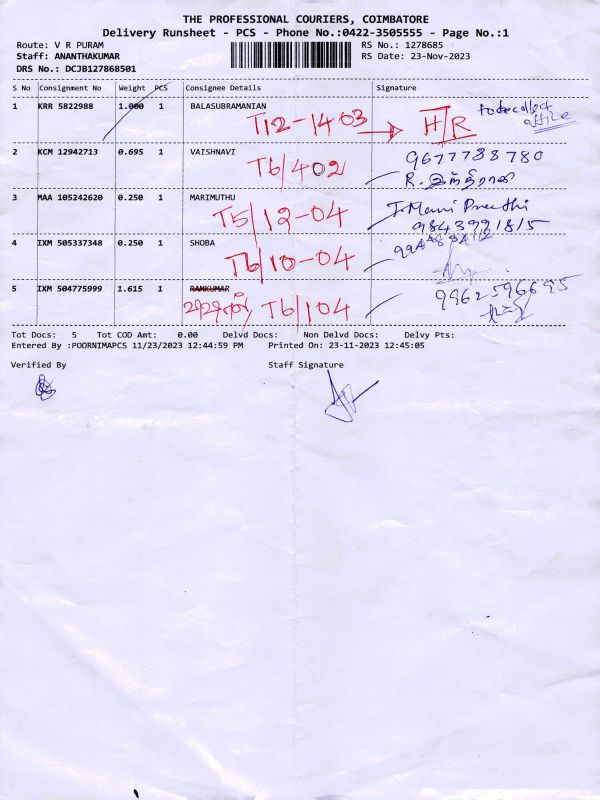 THE PROFESSIONAL COURIERS, COIMBATORE
Delivery Runsheet - PCS - Phone No.:0422-3505555 - Page No.:1
Route: V R PURAM RS No.: 1278685
Staff: ANANTHAKUMAR RS Date: 23-Nov-2023
DRS No.: DCJB127868501
S No Consignment No Weight PCS Consignee Details Signature
1 KRR 5822988 1.000 1 BALASUBRAMANIAN
T12-1403 → H/R
office
2 KCM 12942713 0.695 1 VAISHNAVI 9677738780
T6/402 R. இந்திராணி
3 MAA 105242620 0.250 1 MARIMUTHU
T5/12-04 9843991815
4 IXM 505337348 0.250 1 SHOBA
T6/10-04
5 IXM 504775999 1.615 1 RAMKUMAR 9962596695
T6/104
Tot Docs: 5 Tot COD Amt: 0.00 Delvd Docs: Non Delvd Docs: Delvy Pts:
Entered By :POORNIMAPCS 11/23/2023 12:44:59 PM Printed On: 23-11-2023 12:45:05
Verified By Staff Signature